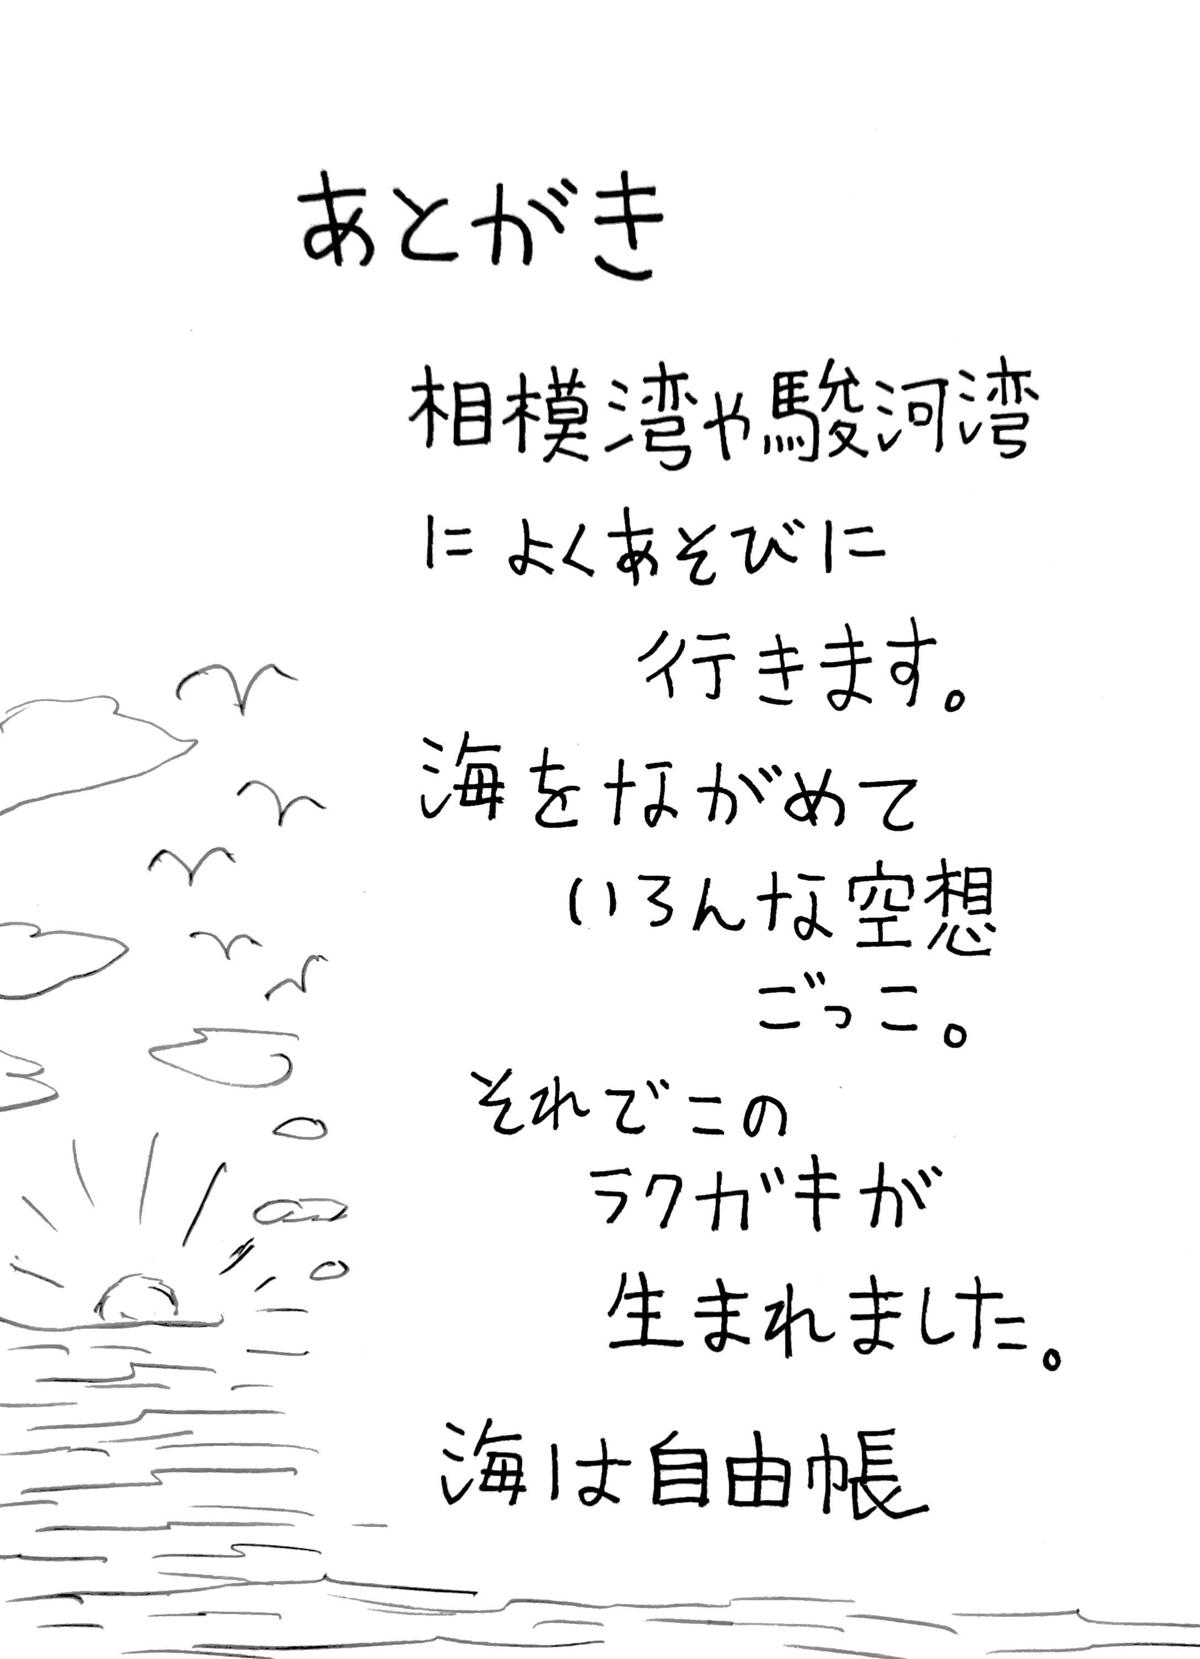 あとがき
相模湾や駿河湾
によくあそびに
行きます。
海をながめて
いろんな空想
ごっこ。
それでこの
ラクガキが
生まれました。
海は自由帳